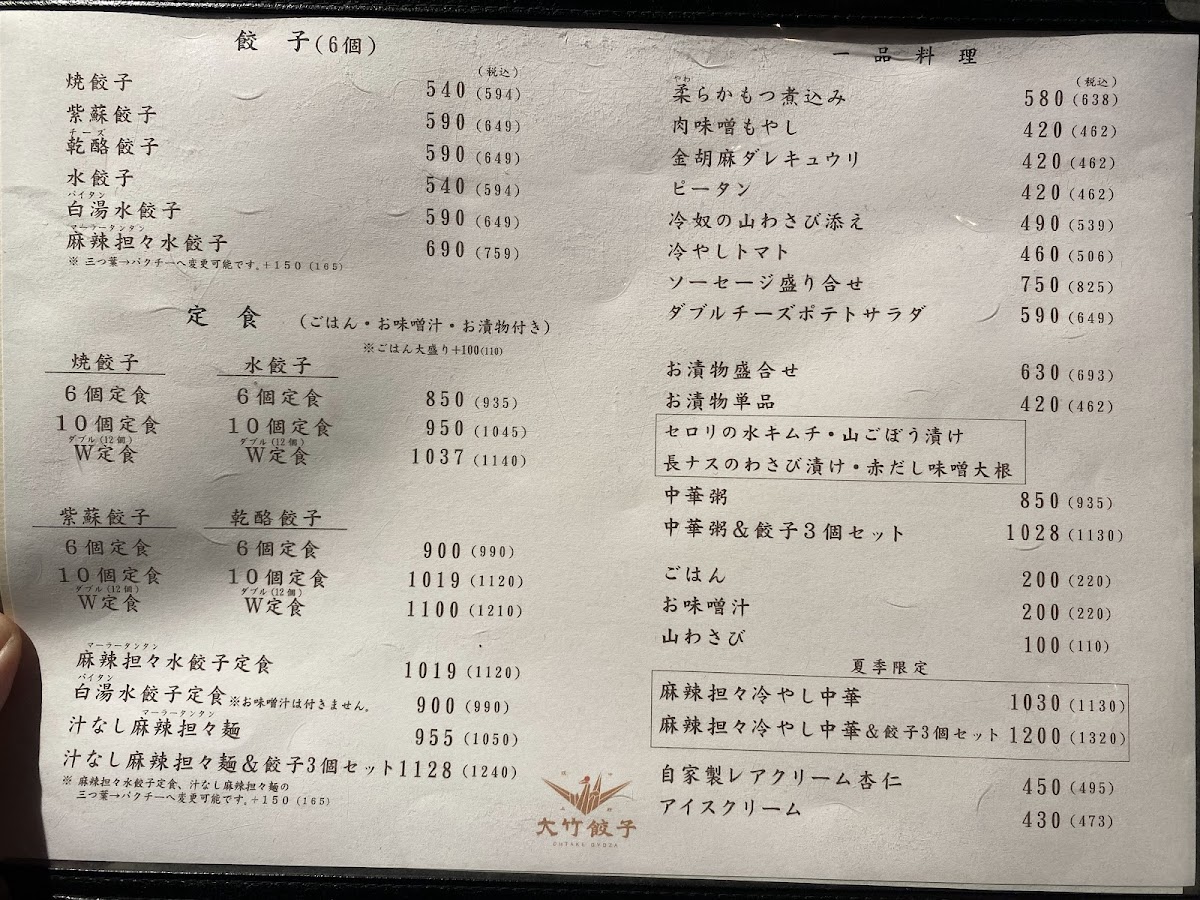 餃子(6個)
(税込)
焼餃子 540(594)
紫蘇餃子 590(649)
チーズ
乾酪餃子 590(649)
水餃子 540(594)
パイタン
白湯水餃子 590(649)
マーラータンタン
麻辣担々水餃子 690(759)
※ 三つ葉→パクチーへ変更可能です。+150(165)
定食 (ごはん・お味噌汁・お漬物付き)
※ごはん大盛り+100(110)
焼餃子 水餃子
6個定食 6個定食 850(935)
10個定食 10個定食 950(1045)
ダブル(12個) ダブル(12個)
W定食 W定食 1037(1140)
紫蘇餃子 乾酪餃子
6個定食 6個定食 900(990)
10個定食 10個定食 1019(1120)
ダブル(12個) ダブル(12個)
W定食 W定食 1100(1210)
マーラータンタン
麻辣担々水餃子定食 1019(1120)
パイタン
白湯水餃子定食※お味噌汁は付きません。 900(990)
マーラータンタン
汁なし麻辣担々麺 955(1050)
汁なし麻辣担々麺&餃子3個セット1128(1240)
※ 麻辣担々水餃子定食、汁なし麻辣担々麺の
三つ葉→パクチーへ変更可能です。+150(165)
一品料理
(税込)
やわ
柔らかもつ煮込み 580(638)
肉味噌もやし 420(462)
金胡麻ダレキュウリ 420(462)
ピータン 420(462)
冷奴の山わさび添え 490(539)
冷やしトマト 460(506)
ソーセージ盛り合せ 750(825)
ダブルチーズポテトサラダ 590(649)
お漬物盛合せ 630(693)
お漬物単品 420(462)
セロリの水キムチ・山ごぼう漬け
長ナスのわさび漬け・赤だし味噌大根
中華粥 850(935)
中華粥&餃子3個セット 1028(1130)
ごはん 200(220)
お味噌汁 200(220)
山わさび 100(110)
夏季限定
麻辣担々冷やし中華 1030(1130)
麻辣担々冷やし中華&餃子3個セット 1200(1320)
自家製レアクリーム杏仁 450(495)
アイスクリーム 430(473)
大竹餃子
OHTAKE GYOZA